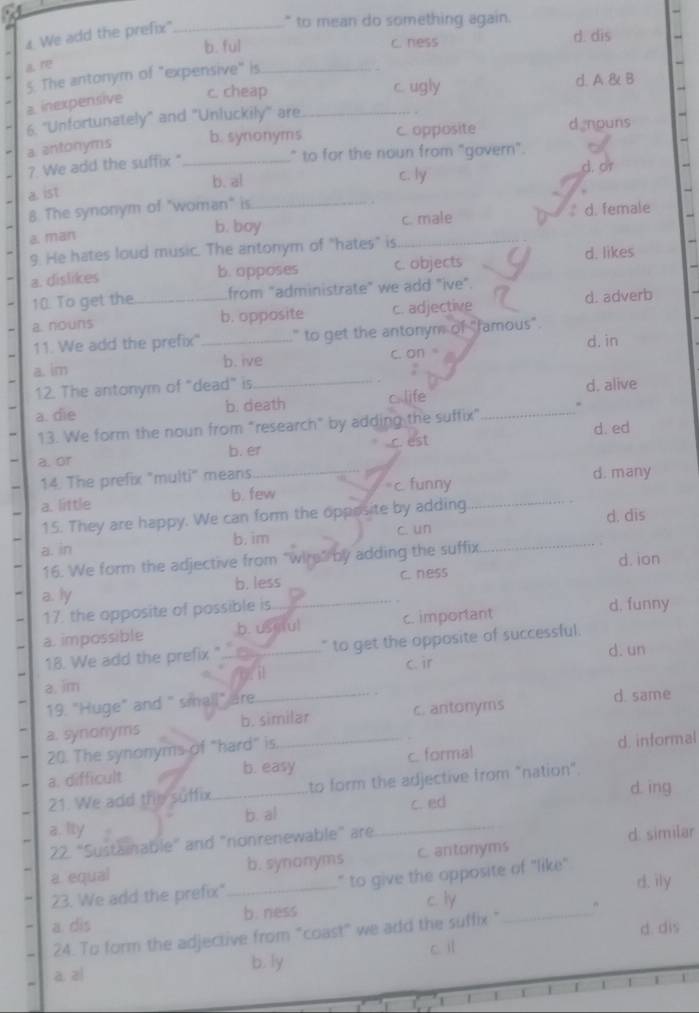 4. We add the prefix"____________" to mean do something again.
a. re b. ful c. ness d. dis
5. The antonym of "expensive" is____________.
a. inexpensive c. cheap c. ugly d. A & B
6. "Unfortunately" and "Unluckily" are____________.
a. antonyms b. synonyms c. opposite d. nouns
7. We add the suffix "____________" to for the noun from "govern".
a. ist b. al c. ly d. or
8. The synonym of "woman" is____________.
a. man b. boy c. male d. female
9. He hates loud music. The antonym of "hates" is____________.
a. dislikes b. opposes c. objects d. likes
10. To get the____________from "administrate" we add "ive".
a. nouns b. opposite c. adjective d. adverb
11. We add the prefix"____________" to get the antonym of "famous".
a. im b. ive c. on d. in
12. The antonym of "dead" is____________.
a. die b. death c. life d. alive
13. We form the noun from "research" by adding the suffix"____________"
a. or b. er c. est d. ed
14. The prefix "multi" means____________
a. little b. few c. funny d. many
15. They are happy. We can form the opposite by adding____________.
a. in b. im c. un d. dis
16. We form the adjective from by adding the suffix____________.
a. ly b. less c. ness d. ion
17. the opposite of possible is____________.
a. impossible b. useful c. important d. funny
18. We add the prefix "____________" to get the opposite of successful.
a. im b. il c. ir d. un
19. "Huge" and " small" are____________.
a. synonyms b. similar c. antonyms d. same
20. The synonyms of "hard" is____________.
a. difficult b. easy c. formal d. informal
21. We add the suffix____________to form the adjective from "nation".
a. ity b. al c. ed d. ing
22. "Sustainable" and "nonrenewable" are____________
a. equal b. synonyms c. antonyms d. similar
23. We add the prefix"____________" to give the opposite of "like".
a. dis b. ness c. ly d. ily
24. To form the adjective from "coast" we add the suffix "____________"
a. al b. ly c. il d. dis